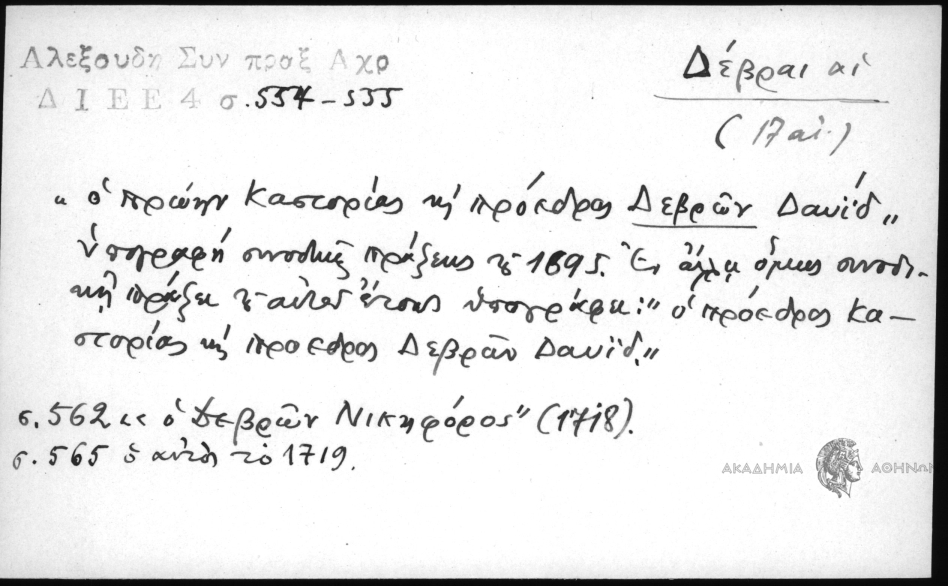 Αλεξουδη Συν πραξ Αχρ
Δ Ι Ε Ε 4 σ. 554-555
Δέβραι αἱ
(17 αἰ.)
" ὁ πρώην Καστορίας κὴ πρόεδρος Δεβρῶν Δαυΐδ "
ὑπογραφή συνοδικῆς πράξεως τοῦ 1695. Ἐν ἄλλῃ ὅμως συνοδι-
κῇ πράξει τοῦ αὐτοῦ ἔτους ὑπογράφει: " ὁ πρόεδρος Κα-
στορίας κὴ πρόεδρος Δεβρῶν Δαυΐδ. "
σ. 562 " ὁ Δεβρῶν Νικηφόρος " (1718).
σ. 565 ὁ αὐτὸς τὸ 1719.
ΑΚΑΔΗΜΙΑ ΑΘΗΝΩΝ